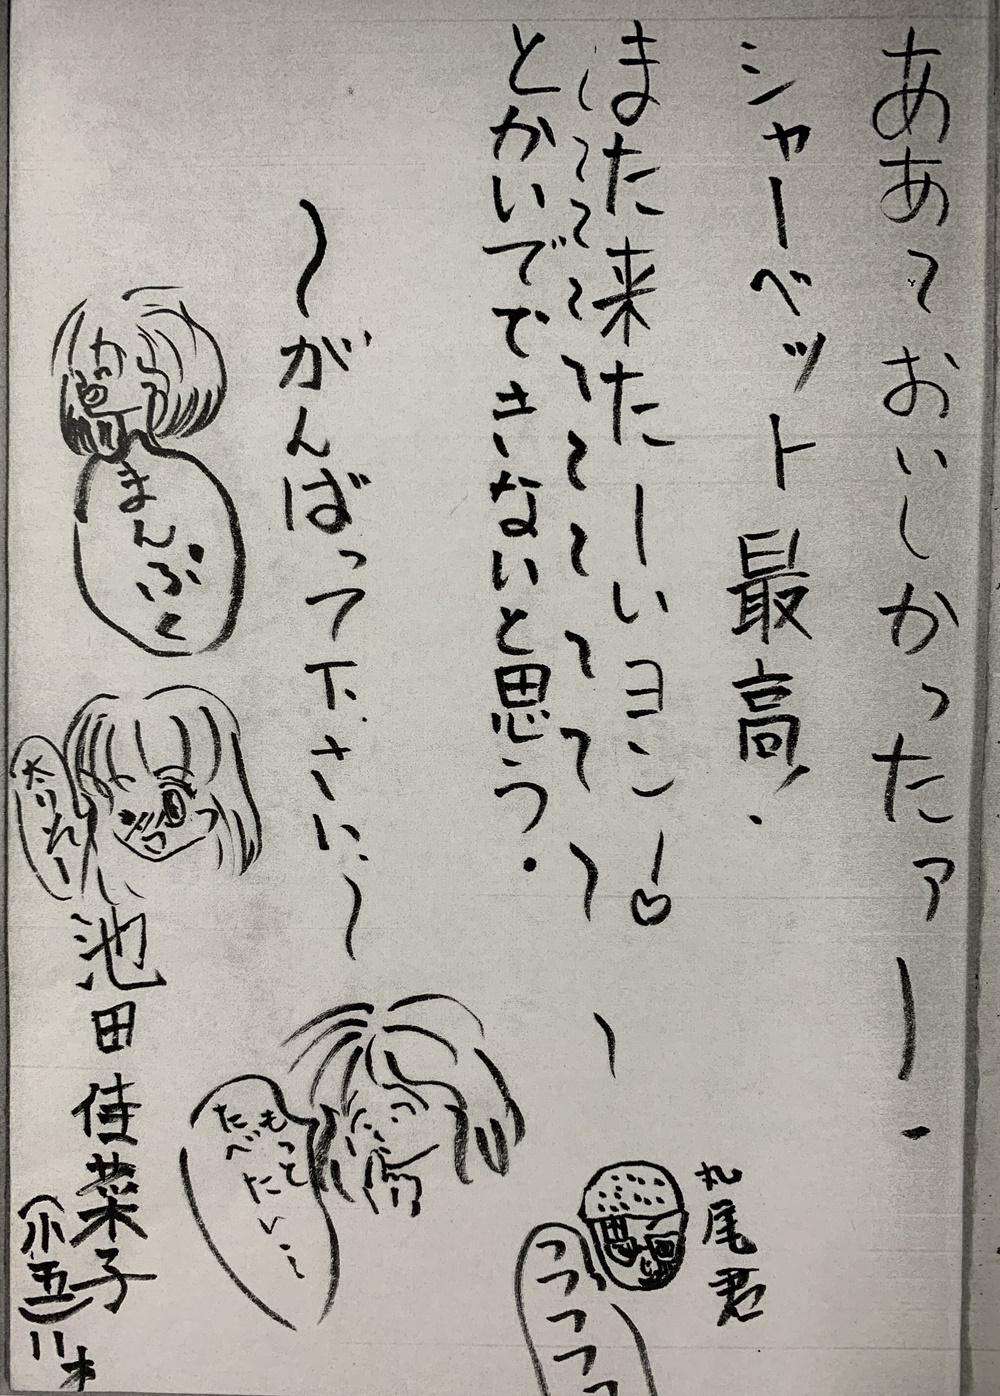 ああ〜おいしかったァー.
シャーベット最高!.
また来たーいヨ〜ン!♡
〜〜〜〜〜〜〜〜〜
とかいでできないと思う.
〜がんばって下さい〜
丸尾君
つつつつつ
もっと
たべたい〜
まんぷく
池田佳菜子
(小五)11才